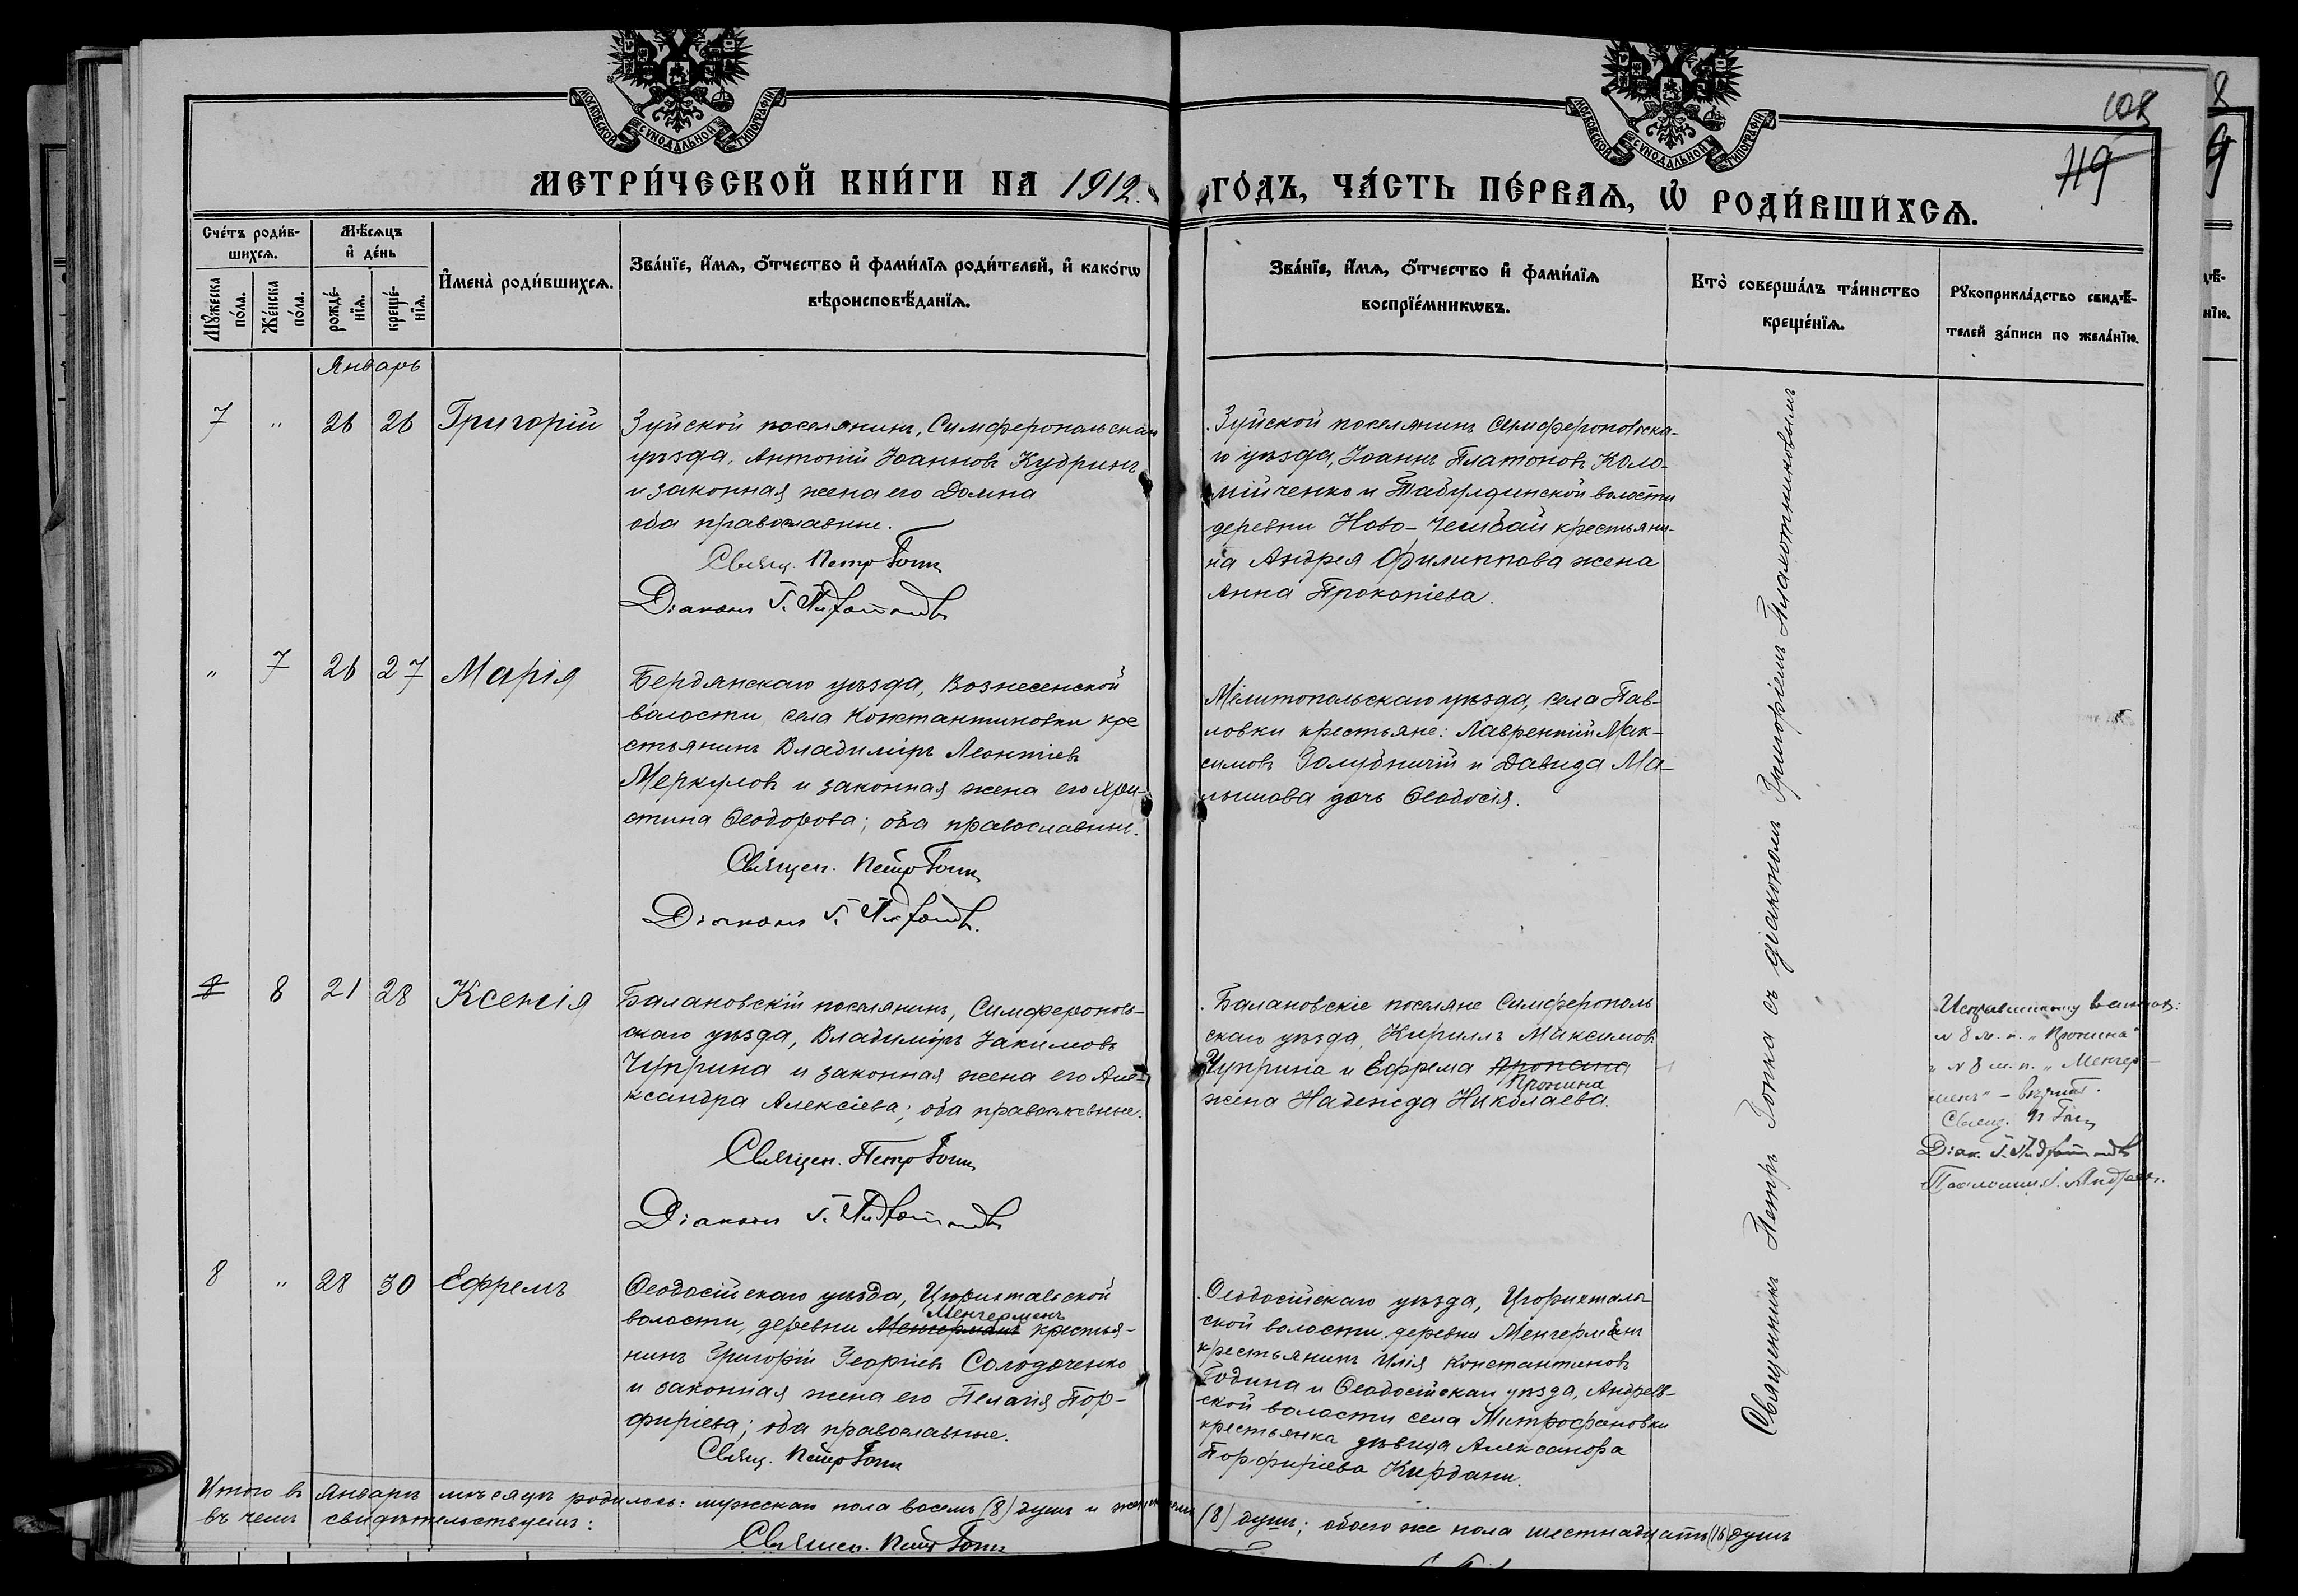 МОСКОВСКОЙ СѴНОДАЛЬНОЙ ТИПОГРАФІИ
МОСКОВСКОЙ СѴНОДАЛЬНОЙ ТИПОГРАФІИ
108
119
МЕТРИ́ЧЕСКОЙ КНИ́ГИ НА 1912.
ГО́ДЪ, ЧА́СТЬ ПЕ́РВАѦ, Ѡ҆ РОДИ́ВШИХСѦ.
Сче́тъ роди́в-
шихсѧ.
Мѣ́сѧцъ
и҆ де́нь
Мꙋ́жеска
по́ла.
Же́нска
по́ла.
рожде́-
нїѧ.
креще́-
нїѧ.
И҆мена̀ роди́вшихсѧ.
Зва́нїе, и҆́мѧ, ѻ҆́тчество и҆ фами́лїѧ роди́телей, и҆ како́гѡ
вѣроисповѣ́данїѧ.
Зва́нїе, и҆́мѧ, ѻ҆́тчество и҆ фами́лїѧ
воспрїе́мникѡвъ.
Кто̀ соверша́лъ та́инство
креще́нїѧ.
Рꙋкоприкла́дство свидѣ́-
телей за́писи по жела́нїю.
Январь
7 " 26 26 Григорій
Зуйской поселянинъ, Симферопольскаго
уѣзда, Антоній Іоанновъ Кудринъ
и законная жена его Домна
оба православные.
Свящ. Петръ
Діаконъ Г.
Зуйской поселянинъ Симферопольска-
го уѣзда, Іоаннъ Платоновъ Коло-
мійченко и Табулдинской волости
деревни Ново-Чембай крестьяни-
на Андрея Филиппова жена
Анна Прокопіева.
" 7 26 27 Марія
Бердянскаго уѣзда, Вознесенской
волости села Константиновки кре
стьянинъ Владиміръ Леонтіевъ
Меркуловъ и законная жена его Хри-
стина Ѳеодорова; оба православные.
Священ. Петръ
Діаконъ Г.
Мелитопольскаго уѣзда, села Пав-
ловки крестьяне: Лаврентій Мак-
симовъ Голубничій и Давида Ма-
лышова дочь Ѳеодосія.
8 8 21 28 Ксенія
Балановскій поселянинъ, Симферополь-
скаго уѣзда, Владиміръ Іакимовъ
Чуприна и законная жена его Але-
ксандра Алексіева; оба православные.
Священ. Петръ
Діаконъ Г.
Балановскіе поселяне Симферополь
скаго уѣзда, Кириллъ Максимовъ
Чуприна и Ефрема Пропана
Пронина
жена Надежда Николаева.
"Пронина"
"Менгер-
менъ" - вѣрить.
Свящ. П.
Діак. Г.
8 " 28 30 Ефремъ
Ѳеодосійскаго уѣзда, Цюрихтальской
Менгерменъ
волости, деревни Менгерманъ крестья-
нинъ Григорій Георгіевъ Солодоченко
и законная жена его Пелагія Пор-
фиріева; оба православные.
Свящ. Петръ
Ѳеодосійскаго уѣзда, Цюрихталь-
ской волости деревни Менгерменъ
крестьянинъ Илія Константиновъ
Година и Ѳеодосійскаго уѣзда, Андреев-
ской волости села Митрофановки
крестьянка дѣвица Александра
Порфиріева Кирдани.
Священникъ Петръ Гопка съ діакономъ Григоріемъ
Итого въ январѣ мѣсяцѣ родилось: мужскаго пола восемь (8) душъ и (8) душъ; обоего же пола шестнадцать (16) душъ
въ чемъ свидѣтельствуемъ:
Священ. Петръ